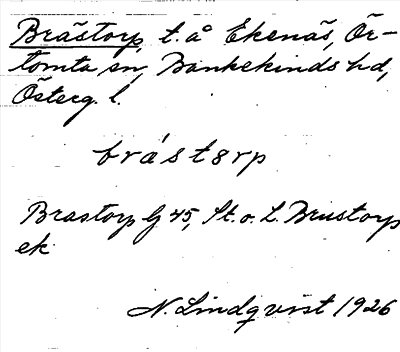 Brastorp, t. å Ekenäs, Ör-
tomta sn, Bankekinds hd,
Österg. l.
brástɞrp
Brastorp Gj 45, St. o. L. Brustorp
ek
N. Lindqvist 1926